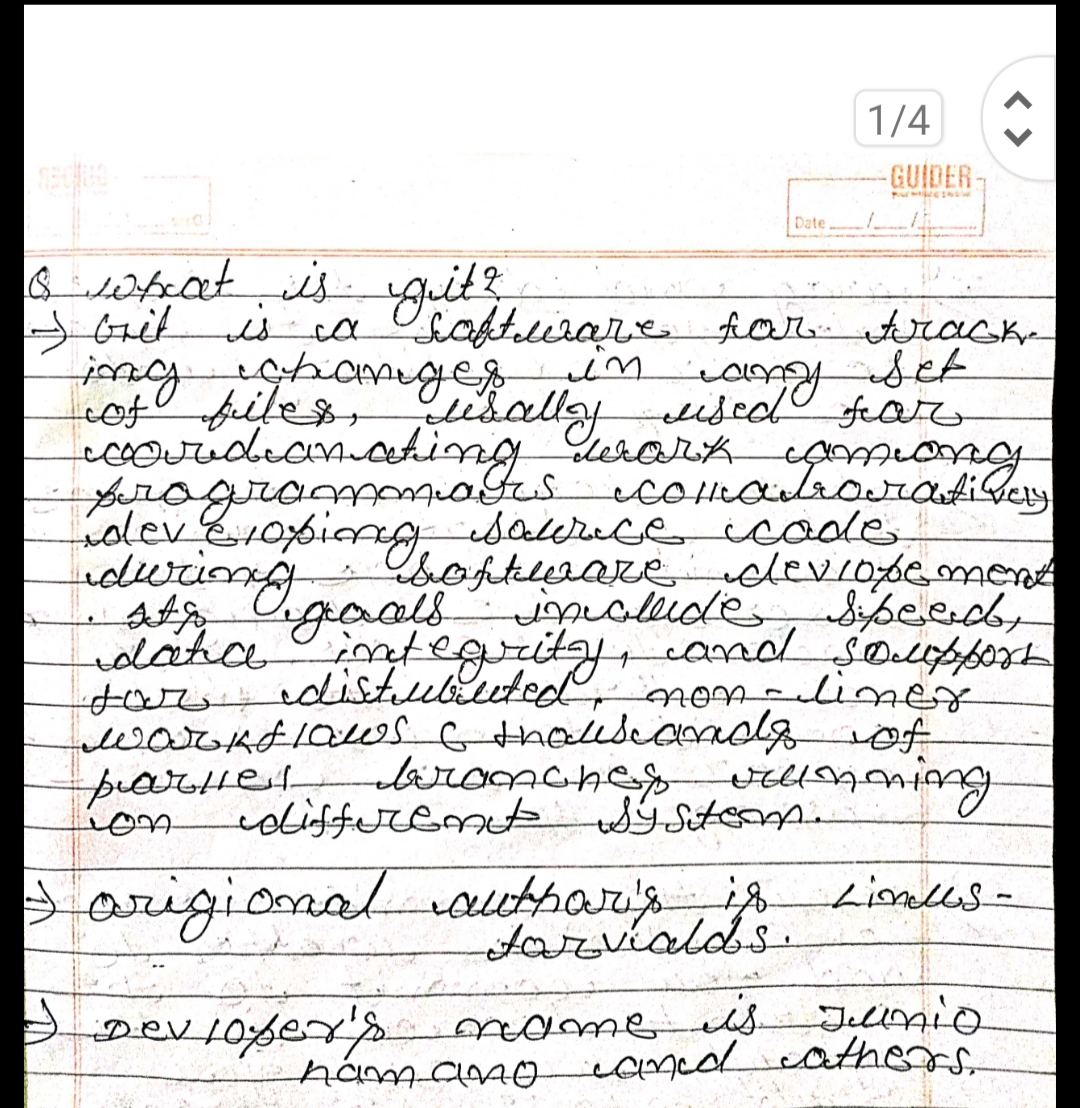 1/4
GUIDER
Date __/__/__
Q what is git?
→ Git is a software for track-
ing changes in any set
of files, usally used for
coordanating work among
programmers collaboratively
developing source code
during software devlopement
. Its goals include speed,
data integrity, and support
for distubuted, non-liner
workflows & thousands of
parllel branches running
on different system.
→ origional author's is Linus-
torvalds.
→ Devloper's name is Junio
hamano and others.